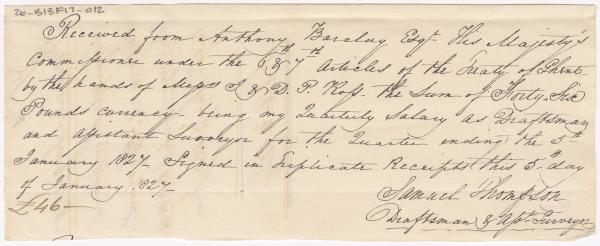 26-B13F17-012
Received from Anthony Barclay Esqr His Majesty's
Commissioner under the 6th & 7th Articles of the Treaty of Ghent
by the hands of Messrs J. & D. P. Ross the Sum of Forty Six
Pounds currency being my Quarterly Salary as Draftsman
and Assistant Surveyor for the Quarter ending the 5th
January 1827 Signed in Duplicate Receipts this 5th day
of January 1827
£46–
Samuel Thompson
Draftsman & Asst Surveyor